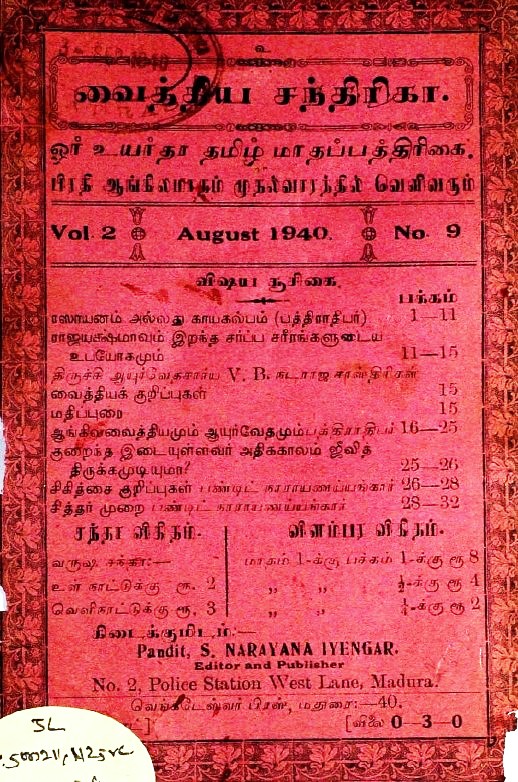 உ
வைத்திய சந்திரிகா.
ஓர் உயர்தர தமிழ் மாதப்பத்திரிகை.
பிரதி ஆங்கிலமாதம் முதல்வாரத்தில் வெளிவரும்
Vol. 2 August 1940. No. 9
விஷய சூசிகை.
பக்கம்
ரஸாயனம் அல்லது காயகல்பம் (பத்திராதிபர்) 1—11
ராஜயக்ஷ்மாவும் இறந்த சர்ப்ப சரீரங்களுடைய
உபயோகமும் 11—15
திருச்சி ஆயுர்வேதசார்ய V. B. நடராஜ சாஸ்திரிகள்
வைத்தியக் குறிப்புகள் 15
மதிப்புரை 15
ஆங்கிலவைத்தியமும் ஆயுர்வேதமும் பத்திராதிபர் 16—25
குறைந்த இடையுள்ளவர் அதிக்காலம் ஜீவித்
திருக்கமுடியுமா? 25—26
சிகித்சை குறிப்புகள் பண்டிட் நாராயணய்யங்கார் 26—28
சித்தர் முறை பண்டிட் நாராயணய்யங்கார் 28—32
சந்தா விகிதம்.
விளம்பர விகிதம்.
வருஷ சந்தா:— மாதம் 1-க்கு பக்கம் 1-க்கு ரூ 8
உள் நாட்டுக்கு ரூ. 2 ,, ,, ½-க்கு ரூ 4
வெளிநாட்டுக்கு ரூ. 3 ,, ,, ¼-க்கு ரூ 2
கிடைக்குமிடம்:—
Pandit, S. NARAYANA IYENGAR.
Editor and Publisher
No. 2, Police Station West Lane, Madura.
வெங்கடேஸ்வர பிரஸ், மதுரை:—40.
[விலை 0—3—0